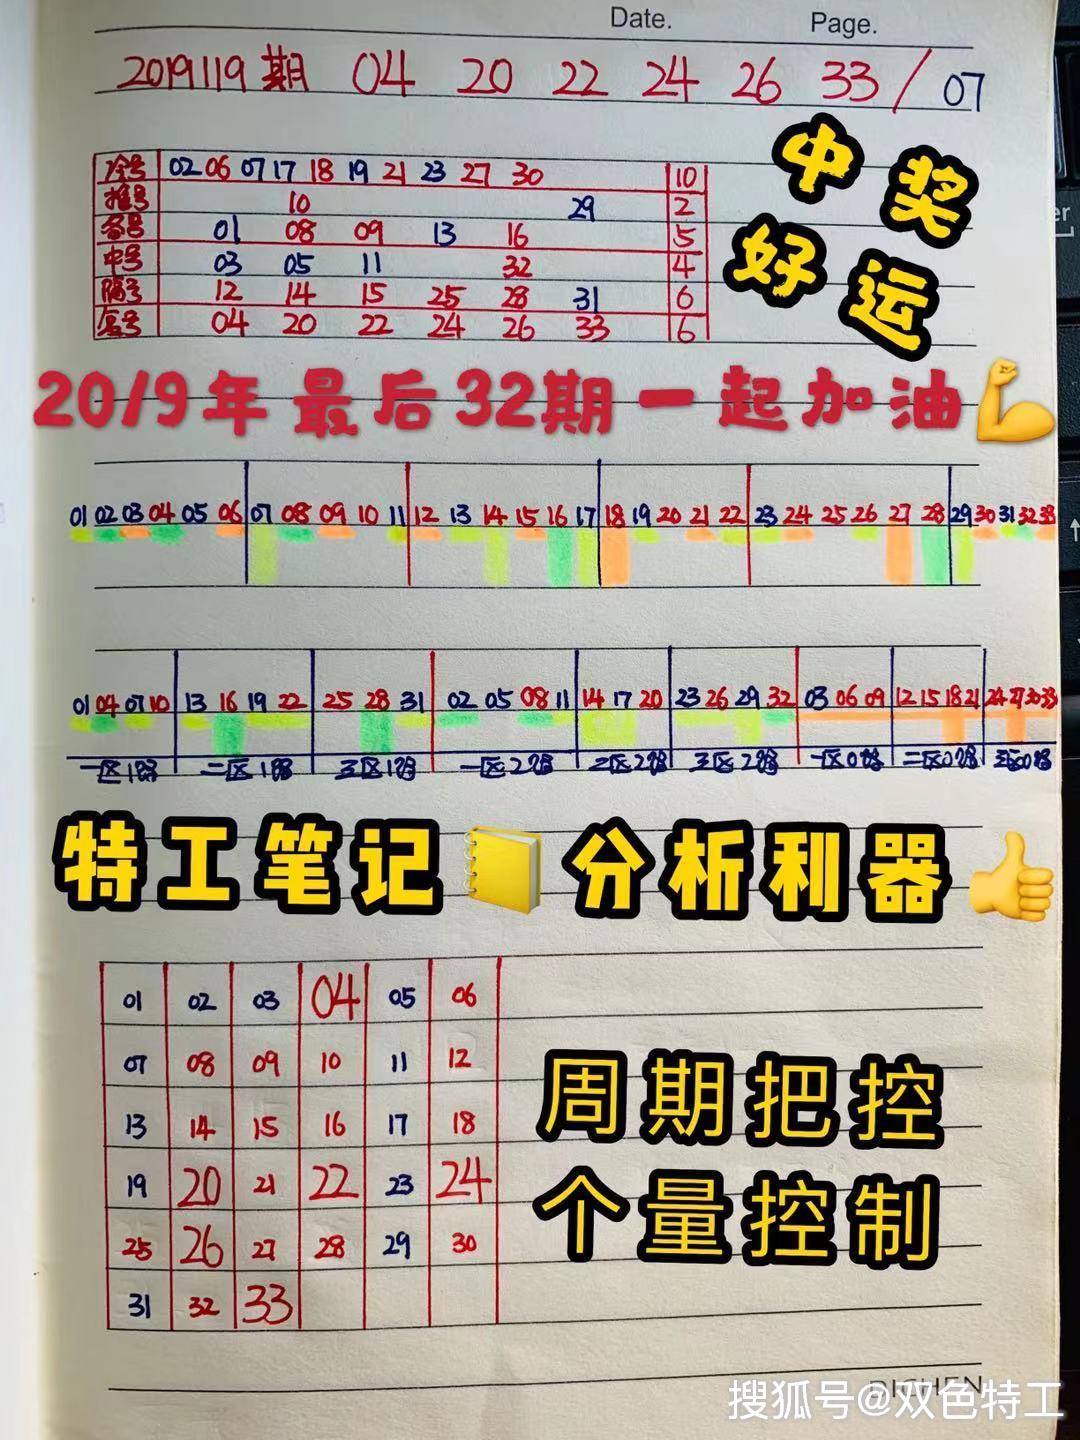 Date. Page.
2019119期 04 20 22 24 26 33/07
中奖
好运
冷号 02 06 07 17 18 19 21 23 27 30 10
推号 10 29 2
01 08 09 13 16 5
中号 03 05 11 32 4
隔号 12 14 15 25 28 31 6
04 20 22 24 26 33 6
2019年最后32期一起加油💪
01 02 03 04 05 06 07 08 09 10 11 12 13 14 15 16 17 18 19 20 21 22 23 24 25 26 27 28 29 30 31 32 33
01 04 07 10 13 16 19 22 25 28 31 02 05 08 11 14 17 20 23 26 29 32 03 06 09 12 15 18 21 24 27 30 33
一区1路 二区1路 三区1路 一区2路 二区2路 三区2路 一区0路 二区0路 三区0路
特工笔记📒分析利器👍
01 02 03 04 05 06
07 08 09 10 11 12
13 14 15 16 17 18
19 20 21 22 23 24
25 26 27 28 29 30
31 32 33
周期把控
个量控制
DICHEN
搜狐号@双色特工